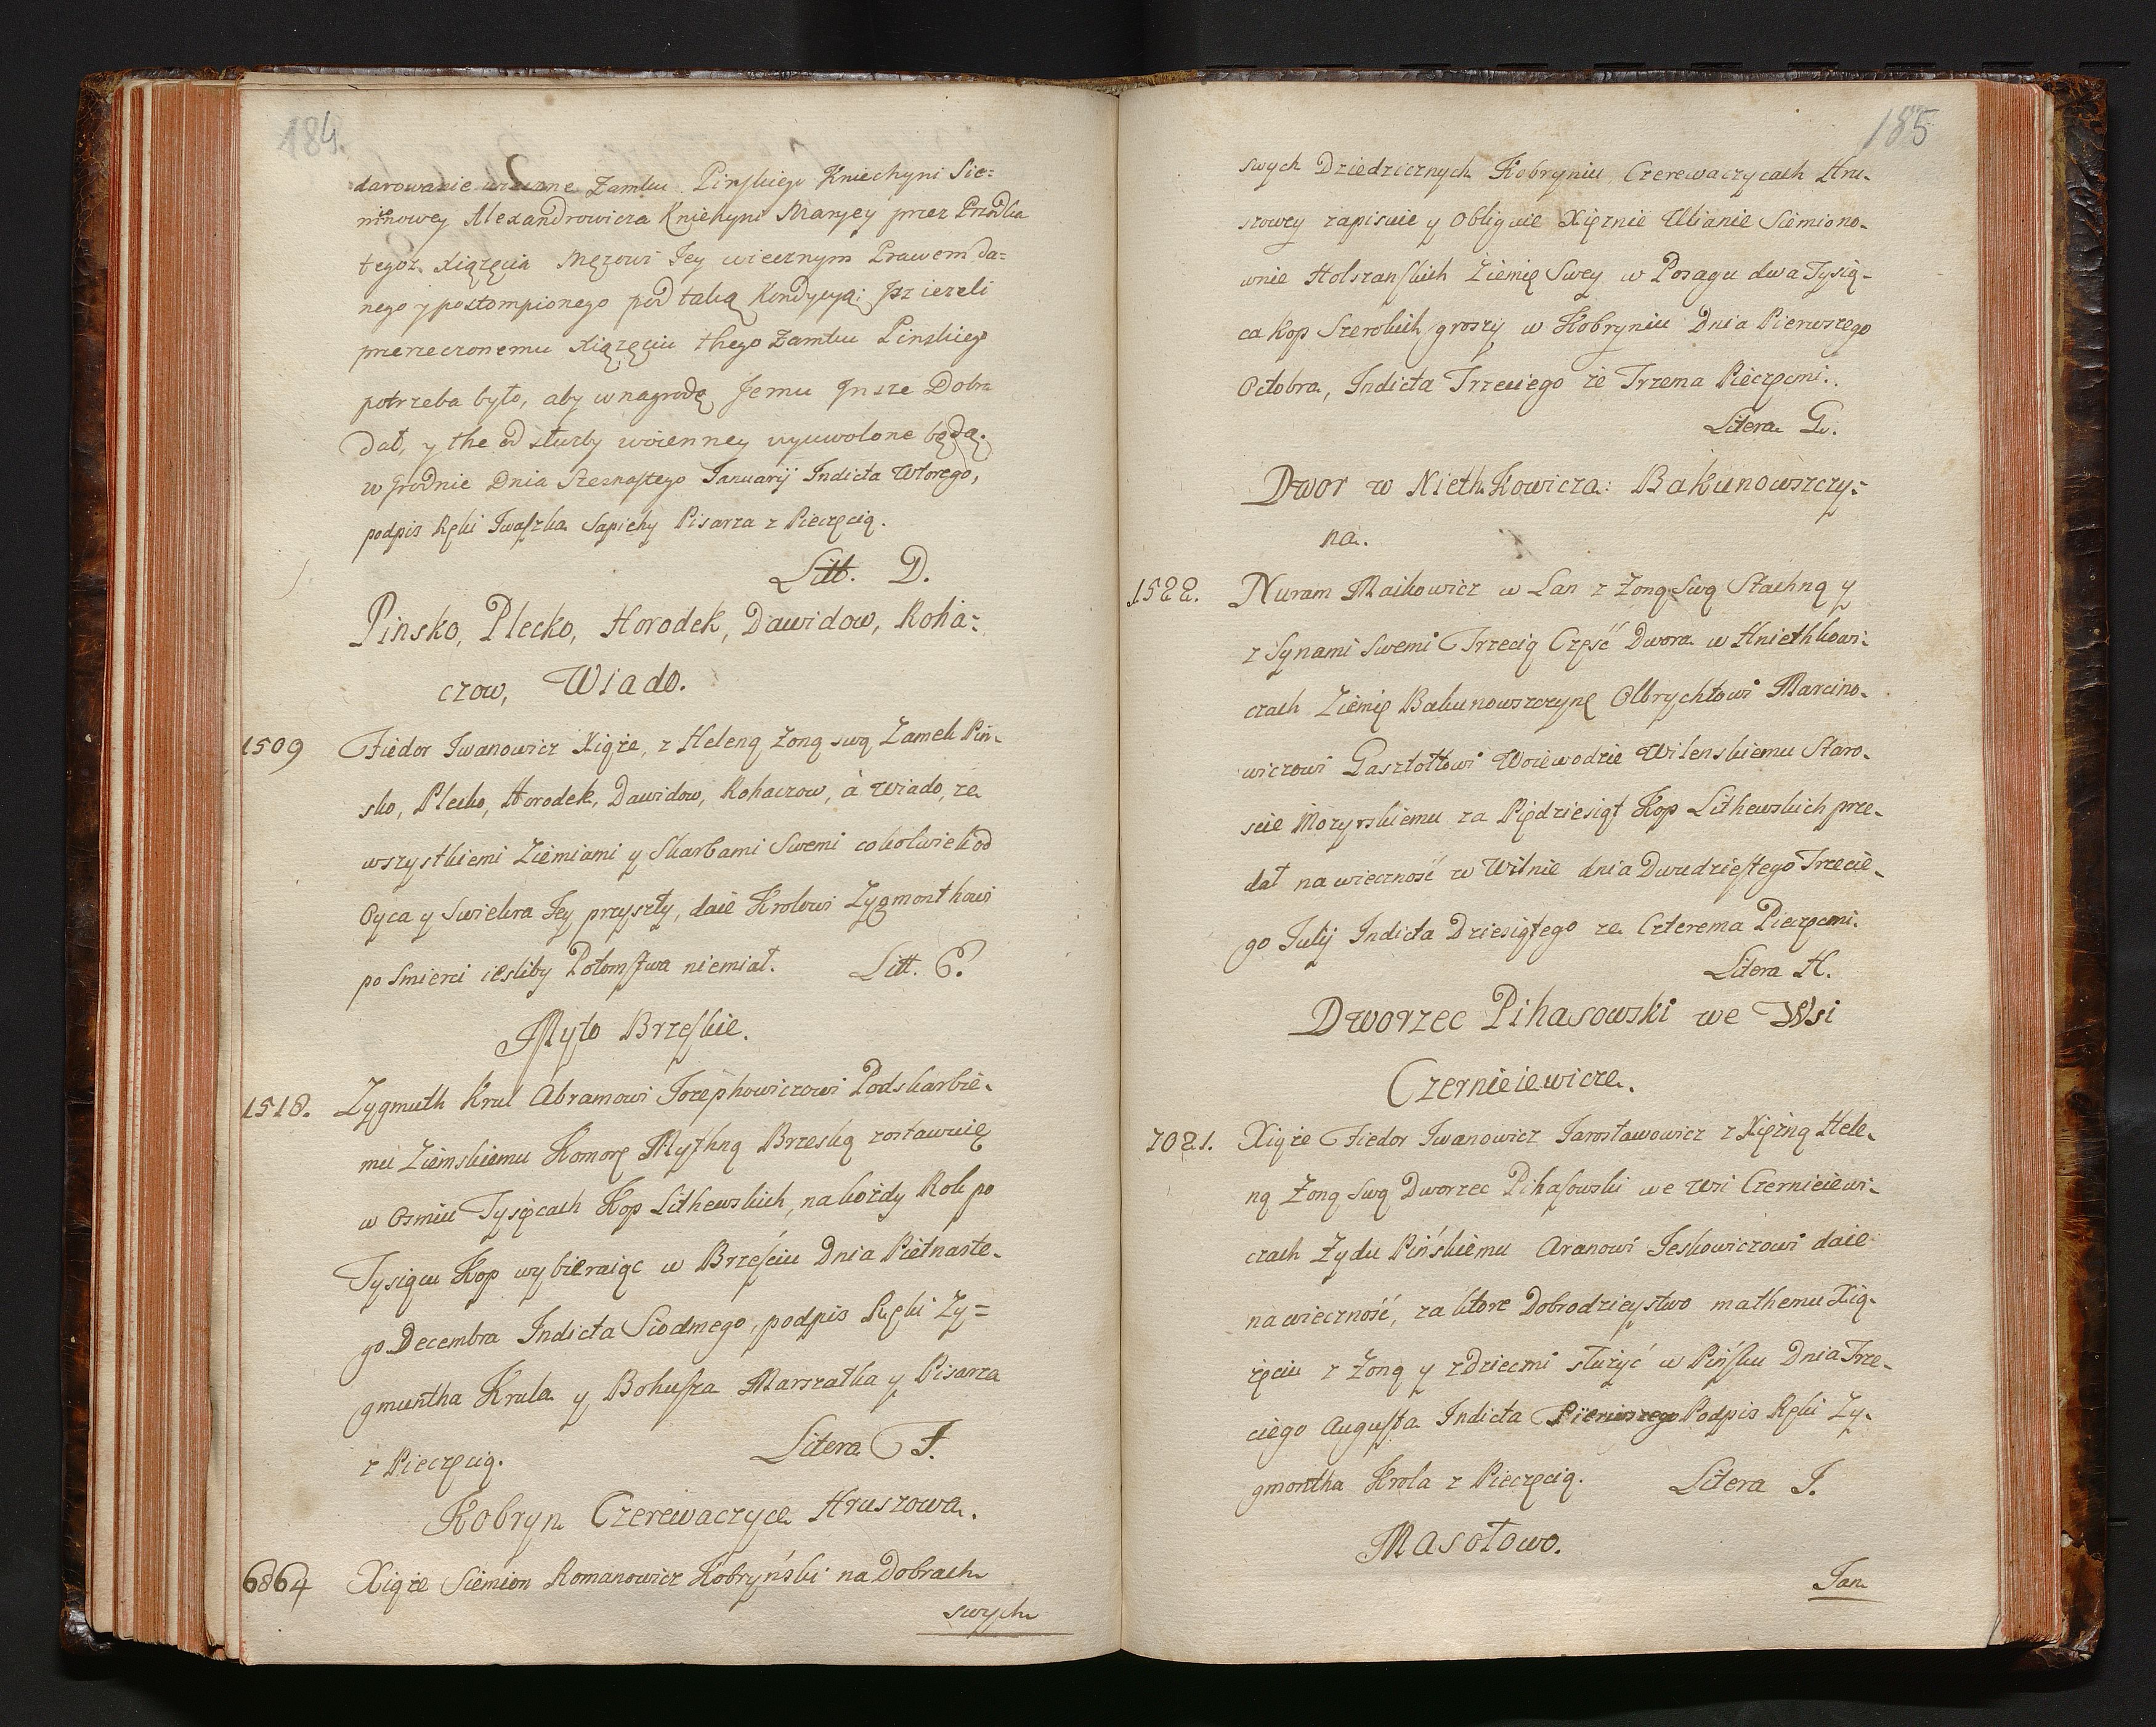 184.
darowanie uczynne Zamku Pinskiego Kniechyni Sie=
mionowey Alexandrowicza Kniehyni Maryey przez Przodka
tegoz Xiązęcia Męzowi Jey wiecznym Prawem da=
nego y postompionego pod taką Kondycyą: Jsz iezeli
przerzeczonemu Xiązęciu thego Zamku Pinskiego
potrzeba było, aby w nagrodę Jemu Jnsze Dobra
dał, y the od służby woienney uyuwolone będą.
w Grodnie Dnia Szesnastego Januarij Indicta Wtorego,
podpis Ręki Jwaszka Sapiehy Pisarza z Pieczęcią.
Litt. D.
Pinsko, Plecko, Horodek, Dawidow, Roha=
czow, Wiado.
1509 Fiedor Jwanowicz Xiąże, z Heleną Zoną swą Zamek Pin-
sko, Plecko, Horodek, Dawidow, Rohaczow, à Wiado, ze
wszystkiemi Ziemiami y Skarbami Swemi cokolwiek od
Oyca y Swiekra Jey przyszły, daie Krolowi Zygmonthowi
po Smierci iesliby Potomstwa niemiał. Litt. E.
Myto Brzeskie.
1518. Zygmuth Krul Abramowi Jozephowiczowi Podskarbie-
mu Ziemskiemu Komorę Mythną Brzeską zostawuię
w Osmiu Tysięcach Kop Lithewskich, na kożdy Rok po
Tysiącu Kop wybieraiąc w Brześciu Dnia Piętnaste-
go Decembra Indicta Siodmego, podpis Ręki Zy=
gmuntha Krula y Bohusza Marszałka y Pisarza
z Pieczęcią. Litera F.
Kobryn Czerewaczyce Hruszowa.
6864 Xiąże Siemion Romanowicz Kobryński na Dobrach
swych
185
swych Dziedzicznych Kobryniu Czerewaczycach Hru-
szowey zapisuie y Obliguie Xiężnie Ulianie Siemiono-
wnie Holszanskich Żienię Swey w Posagu dwa Tysią-
ca Kop Szerokich groszy w Kobryniu Dnia Pierwszego
Octobra, Indicta Trzeciego ze Trzema Pieczęcmi.
Litera G.
Dwor w Nieth. Kowicza: Bakunowszczy=
na.
1522. Nuram Maikowicz w Lan z Zoną Swą Stachną y
z Synami Swemi Trzecią Część Dwora w Hniethkowi-
czach Ziemię Bakunowszczynę Olbrychtowi Marcino-
wiczowi Gasztołtowi Woiewodzie Wilenskiemu Staro-
scie Mozyrskiemu za Pięдziesiąt Kop Lithewskich prze-
dał na wieczność w Wilnie dnia Dwudziestego Trzecie-
go Julij Indicta Dziesiątego ze Czterema Pieczęcmi.
Litera H.
Dworzec Pihasowski we Wsi
Czernieiewicze.
7021. Xiąże Fiedor Jwanowicz Jarosławowicz z Xiężną Hele-
ną Zoną Swą Dworzec Pihasowski we Wsi Czernieiewi-
czach Żydu Pińskiemu Aranowi Jeskowiczowi daie
na wieczność, za ktore Dobrodzieystwo ma themu Xią-
żęciu z Zoną y z dziecmi służyć w Pińsku Dnia Trze-
ciego Augusta Indicta Pierwszego Podpis Ręki Zy-
gmontha Krola z Pieczęcią. Litera J.
Masołowo.
Jan